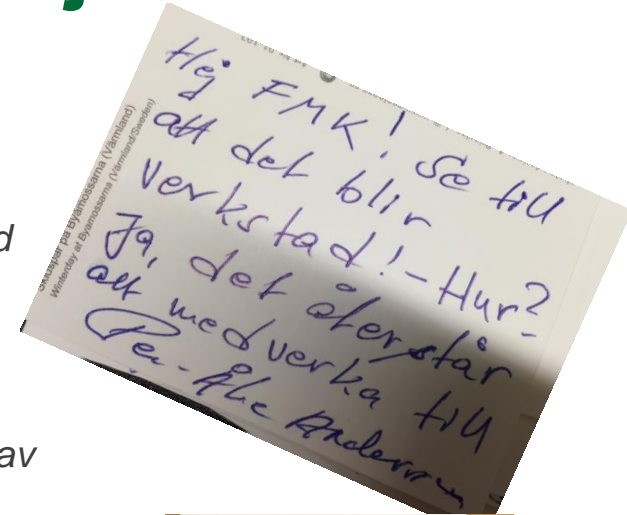 j
d
av
Skidspår på Byamossarna (Värmland)
Winterday at Byamossarna (Värmland/Sweden)
Hej FMK! Se till
att det blir
verkstad! - Hur?
Ja, det återstår
att medverka till
Per-Åke Andersson